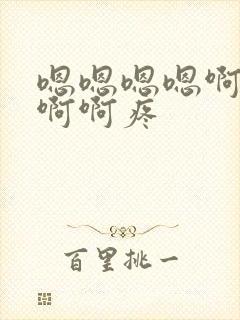 嗯嗯嗯嗯啊
啊啊疼
百里挑一